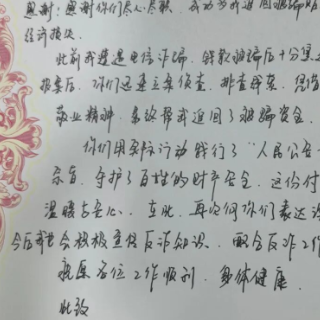 感谢你们尽心尽职，成功为我追回被骗
经济损失。
此前我遭遇电信诈骗，钱款被骗后十分焦
报案后，你们迅速立案侦查，排查线索，凭借
敬业精神，最终帮我追回了被骗资金。
你们用实际行动践行了“人民公安
宗旨，守护了百姓的财产安全，这份付
温暖与安心。在此，再次向你们表达
今后我也会积极宣传反诈知识，配合反诈工作
祝愿各位工作顺利，身体健康
此致